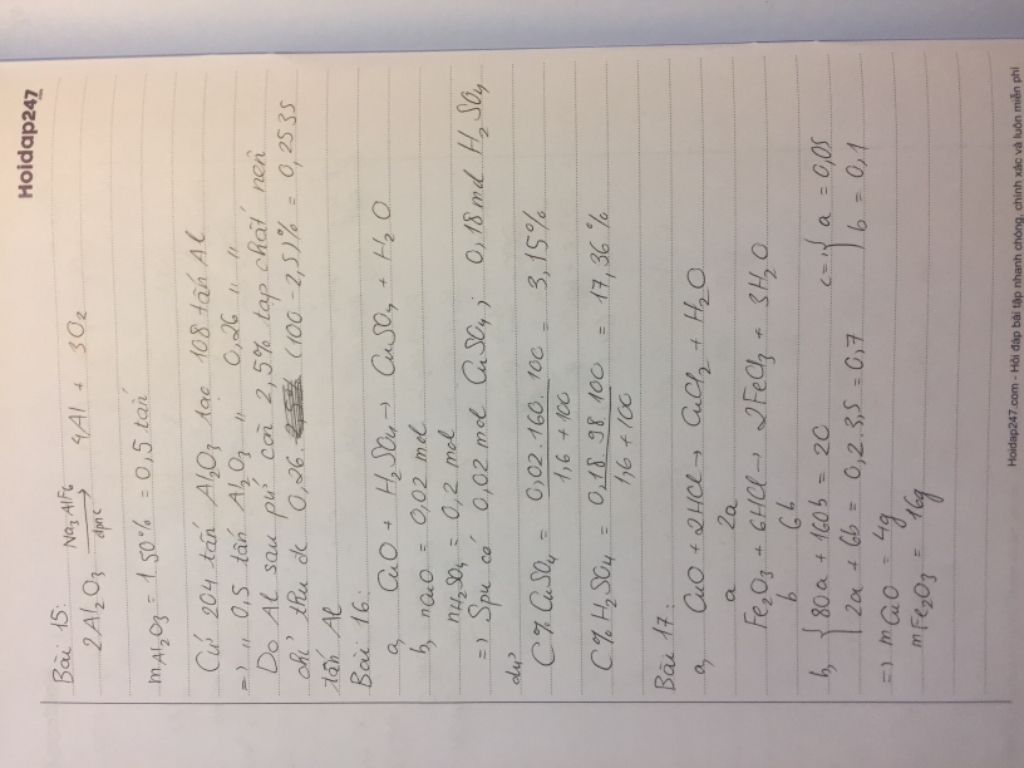 Hoidap247
Bài 15:
2Al2O3 Na3AlF6 → đpnc 4Al + 3O2
mAl2O3 = 1.50% = 0,5 tấn
Cứ 204 tấn Al2O3 tạo 108 tấn Al
=> " 0,5 tấn Al2O3 " 0,26 " "
Do Al sau pứ có 2,5% tạp chất nên
chỉ thu đc 0,26. (100-2,5)% = 0,2535
tấn Al
Bài 16:
a, CuO + H2SO4 → CuSO4 + H2O
b, nCuO = 0,02 mol
nH2SO4 = 0,2 mol
=> Spu có 0,02 mol CuSO4; 0,18 mol H2SO4
dư
C% CuSO4 = 0,02.160.100 / 1,6+100 = 3,15%
C% H2SO4 = 0,18.98.100 / 1,6+100 = 17,36%
Bài 17:
a, CuO + 2HCl → CuCl2 + H2O
a 2a
Fe2O3 + 6HCl → 2FeCl3 + 3H2O
b 6b
b, { 80a + 160b = 20
2a + 6b = 0,2.3,5 = 0,7 <=> { a = 0,05
b = 0,1
=> mCuO = 4g
mFe2O3 = 16g
Hoidap247.com - Hỏi đáp bài tập nhanh chóng, chính xác và luôn miễn phí